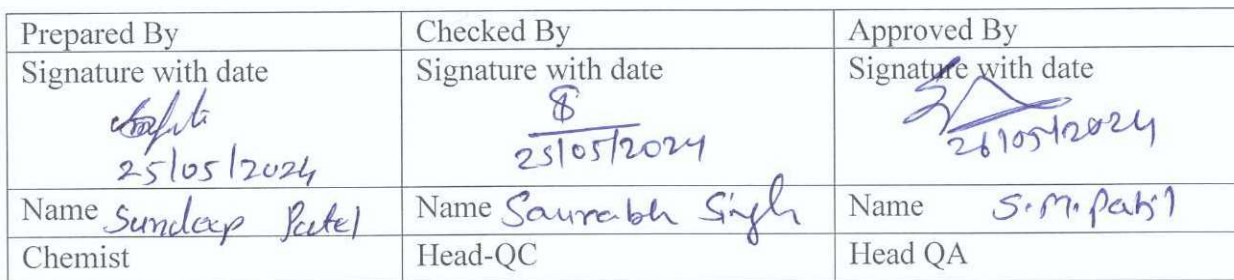 Prepared By
Checked By
Approved By
Signature with date
Signature with date
Signature with date
25/05/2024
25/05/2024
26/05/2024
Name Sundeep Patel
Name Saurabh Singh
Name S.M. Patil
Chemist
Head-QC
Head QA